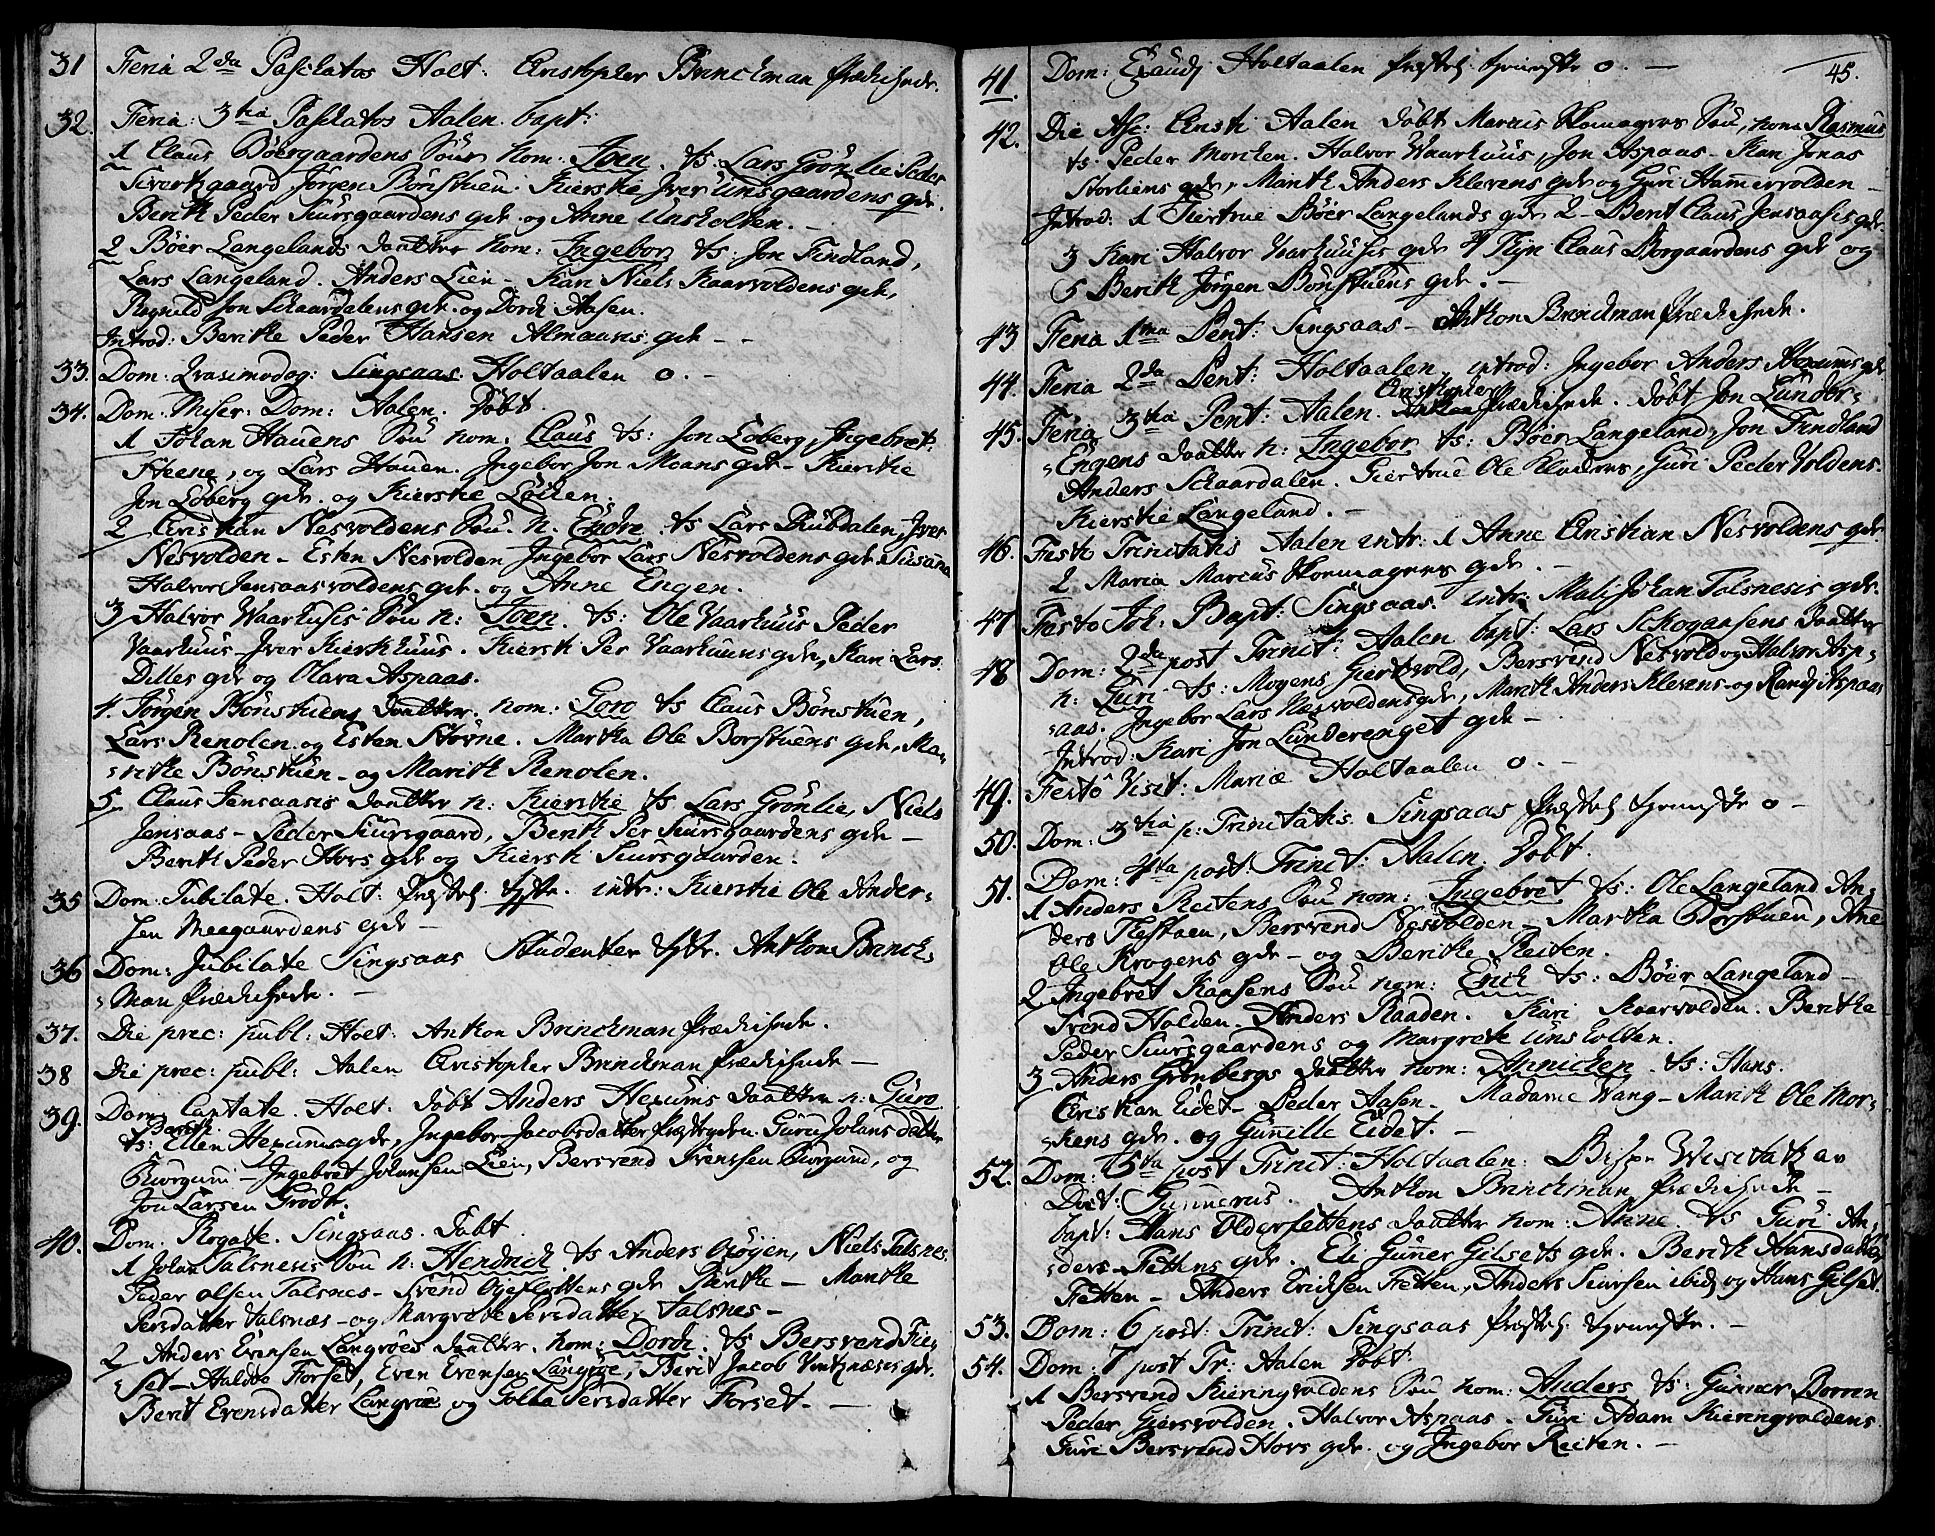 31 Feria 2da Paschatos Holt: Christopher Brinckman prædikede.
32. Feria: 3tia Paschatos Aalen. bapt:
1 Claus Böergaardens Sön nom: Joen. ts: Lars Grönlie Peder
Sivertsgaard Jørgen Bönstuen. Kierstie Jver Unsgaardens gde.
Berith Peder Siursgaardens gde. og Anne Unsholten. –
2 Böer Langelands daatter nom: Ingebor ts: Jon Finland,
Lars Langeland. Anders Lien – Kari Niels Kaarvoldens gde,
Regnild Jon Schaardalens gde. og Dordi Aasen.
Introd: Berithe Peder Hansen Almaans gde – –
33. Dom: Qvasimodog: Singsaas. Holtaalen o. –
34. Dom. Miser: Dom: Aalen. Döbt.
1 Johan Hauens Sön nom. Claus ts: Jon Løberg, Ingebret
Heene, og Lars Hauen. Ingebor Jon Moans gde – Kierstie
Jon Løberg gde. og Kierstie Løden.
2 Christian Nesvoldens Sön. n: Endre. ts Lars Rubdalen, Jver
Nesvolden – Esten Nesvolden Ingebor Lars Nesvoldens gde, Susana
Halvor Jensaasvoldens gde. og Anne Engen.
3 Halvor Waarhusis Sön n: Joen. ts: Ole Vaarhuus Peder
Vaarhuus – Jver Kierkhuus. Kiersti Per Vaarhuuns gde, Kari Lars
Dilles gde og Olava Aspaas.
4. Jørgen Bönstuens daatter. nom: Goro ts Claus Bönstuen,
Lars Renolen og Esten Stövne. Martha Ole Borstuens gde, Ma-
rithe Bönstuen – og Marith Renolen.
5. Claus Jensaasis daatter n: Kierstie ts Lars Grönlie, Niels
Jensaas – Peder Siursgaard, Berith Per Siursgaardens gde –
Berith Peder Hovs gde og Kiersti Siursgaarden.
35 Dom. Jubilate. Holt: intr: Kierstie Ole Ander-
sen Meegaardens gde –
36 Dom: Jubilate Singsaas Studenter Anthon Brinck-
man prædikede. –
37. Die prec: publ: Holt: Anthon Brinckman prædikede.
38 Die prec: publ: Aalen Christopher Brinckman prædikede –
39. Dom: Cantate. Holt. Döbt Anders Hexums daatter n: Guro
ts: Ellen Hexums gde, Ingebor Jacobsdatter Guru Johans datter
Kurgum – Ingebret Johansen Lien, Bersvend Svensen Kurgum, og
Jon Larsen Grödt.
40. Dom. Rogate. Singsaas. Döbt
1 Johan Talsnesis Sön n: Hendrich. ts Anders Ojøyen, Niels Talsnes
Peder Olsen Talsnes – Svend Øyeflottens gde Birithe – Marithe
Persdatter Talsnæs – og Margrethe Persdatter Talsnes –
2 Anders Evensen Langröes daatter. nom: Dordi. ts Bersvend Fie-
set – Haldoe Forset, Even Evensen Langröe, Berit Jacob Vintznæsis gde.
Berit Evensdatter Langröe og Golla Persdatter Forset. –
45.
41. Dom: Exaudj Holtaalen o. –
42. Die Asc: Christi Aalen döbt Marcus Homagers Sön, nom: Rasmus
ts: Peder Morchen. Halvor Waarhuus, Jon Aspaas – Kari Jonas
Storliens gde, Marith Anders Klevens gde og Guri Hamervolden –
Introd: 1 Giertrue Böer Langelands gde 2 – Berit Claus Jensaasis gde
3 Kari Halvor Vaarhuusis gde 4 Thyri Claus Borgaardens gde og
5 Berith Jørgen Bönstuens gde. –
43 Feria 1ma Pent: Singsaas – Anthon Brinckman prædikede.
44. Feria 2da Pent: Holtaalen, introd: Ingebor Anders Hexums gde
45. Feria 3tia Pent: Aalen. Christopher prædikede. döbt Jon Lunder-
Engens daatter n: Ingebor ts: Böer Langeland, Jon Finland
Anders Schaardalen. Giertrue Ole Kladens, Guri Peder Voldens.
Kierstie Langeland. –
46. Festo Trinitatis Aalen intr: 1 Anne Christian Nesvoldens gde
2. Maria Marcus Homagers gde. –
47 Festo Joh. Bapt: Singsaas. intr: Mali Johan Talsnesis gde.
48 Dom: 2da post Trinit: Aalen bapt: Lars Schogaasens daatter
n: Guri ts: Mogens Giertvold, Bersvend Nesvold og Halvor Asp-
aas. Ingebor Lars Næsvoldens gde, Marith Anders Klevens og Randj Aspaas
Introd: Kari Jon Lunderenget gde –
49. Festo Visit: Mariæ Holtaalen o. –
50. Dom: 3tia p: Trinitatis Singsaas o –
51. Dom: 4ta post: Trinit: Aalen. Döbt.
1 Anders Reitens Sön nom: Ingebret ts: Ole Langeland An-
ders Flostaen, Bersvend Nesvolden – Martha Borstuen, Ane
Ole Krogens gde – og Berithe Reiten.
2 Ingebret Kaasens Sön nom: Erich ts: Böer Langeland –
Svend Holden. Anders Raaden. Kari Kvarvolden. Berithe
Peder Siursgaardens og Margrete Unsholten.
3 Anders Grönbergs daatter nom: Annichen ts: Hans.
Christian Eidet – Peder Aasen – Madame Wang – Marith Ole Mor-
kens gde. og Gunille Eidet. –
52. Dom: 5ta post Trinit: Holtaalen: Bispe Visitats av
Doct: Gunnerus. Anthon Brinckman prædikede –
bapt: Hans Olderfettens daatter nom: Anne. ts Guri An-
ders Fettens gde. Eli Guner Gilsets gde. Berith Hansdatter
Fetten – Anders Erichsen Fetten, Anders Siursen ibid og Hans Gilset.
53. Dom: 6 post: Trinit: Singsaas –
54. Dom: 7 post Tr: Aalen Döbt.
1 Bersvend Kieringvoldens Sön nom: Anders ts: Gunner Borren
Peder Giersvolden. Halvor Aspaas. Guri Adam Kieringvoldens
Guri Bersvend Hovs gde. og Ingebor Reiten. –